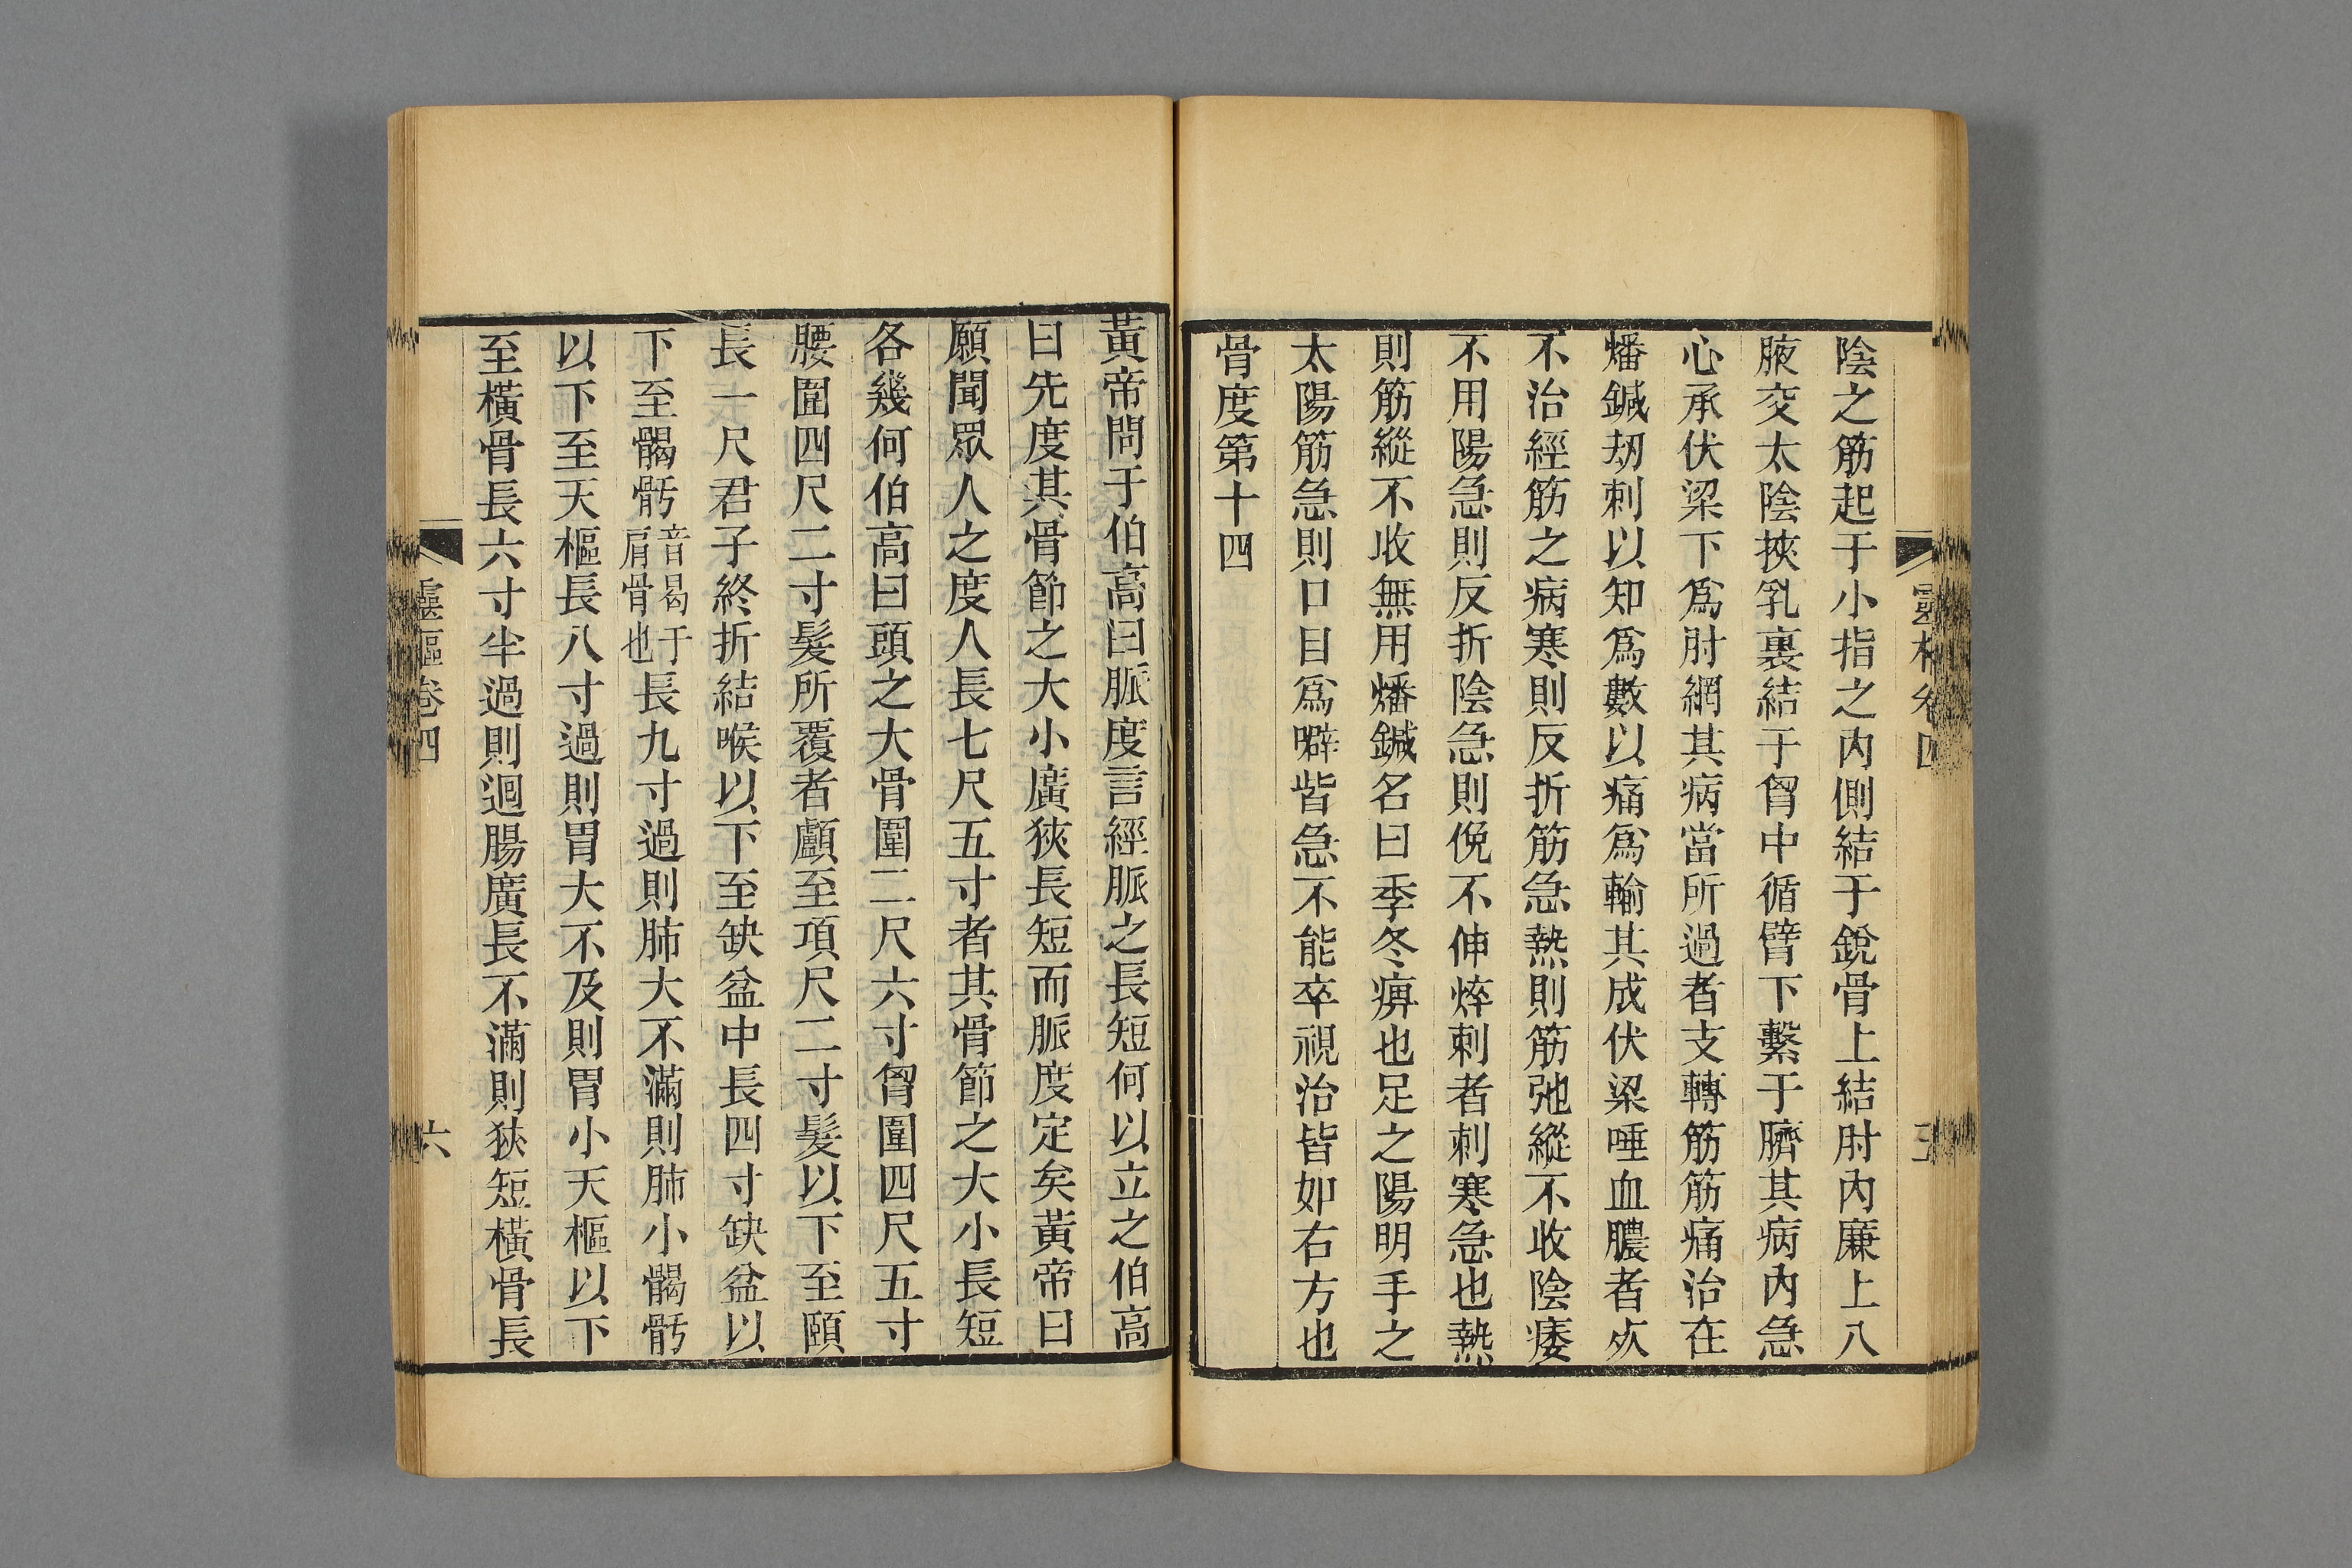 陰之筋起于小指之內側結于銳骨上結肘內廉上入
腋交太陰挾乳裏結于胷中循臂下繫于臍其病內急
心承伏梁下爲肘網其病當所過者支轉筋筋痛治在
燔鍼刼刺以知爲數以痛爲輸其成伏梁唾血膿者死
不治經筋之病寒則反折筋急熱則筋弛縱不收陰痿
不用陽急則反折陰急則俛不伸焠刺者刺寒急也熱
則筋縱不收無用燔鍼名曰季冬痹也足之陽明手之
太陽筋急則口目爲噼眥急不能卒視治皆如右方也
骨度第十四
黃帝問于伯高曰脈度言經脈之長短何以立之伯高
曰先度其骨節之大小廣狹長短而脈度定矣黃帝曰
願聞眾人之度人長七尺五寸者其骨節之大小長短
各幾何伯高曰頭之大骨圍二尺六寸胷圍四尺五寸
腰圍四尺二寸髮所覆者顱至項尺二寸髮以下至頤
長一尺君子終折結喉以下至缺盆中長四寸缺盆以
下至𩩲骬音曷于肩骨也長九寸過則肺大不滿則肺小𩩲骬
以下至天樞長八寸過則胃大不及則胃小天樞以下
至橫骨長六寸半過則迴腸廣長不滿則狹短橫骨長
靈樞卷四
六